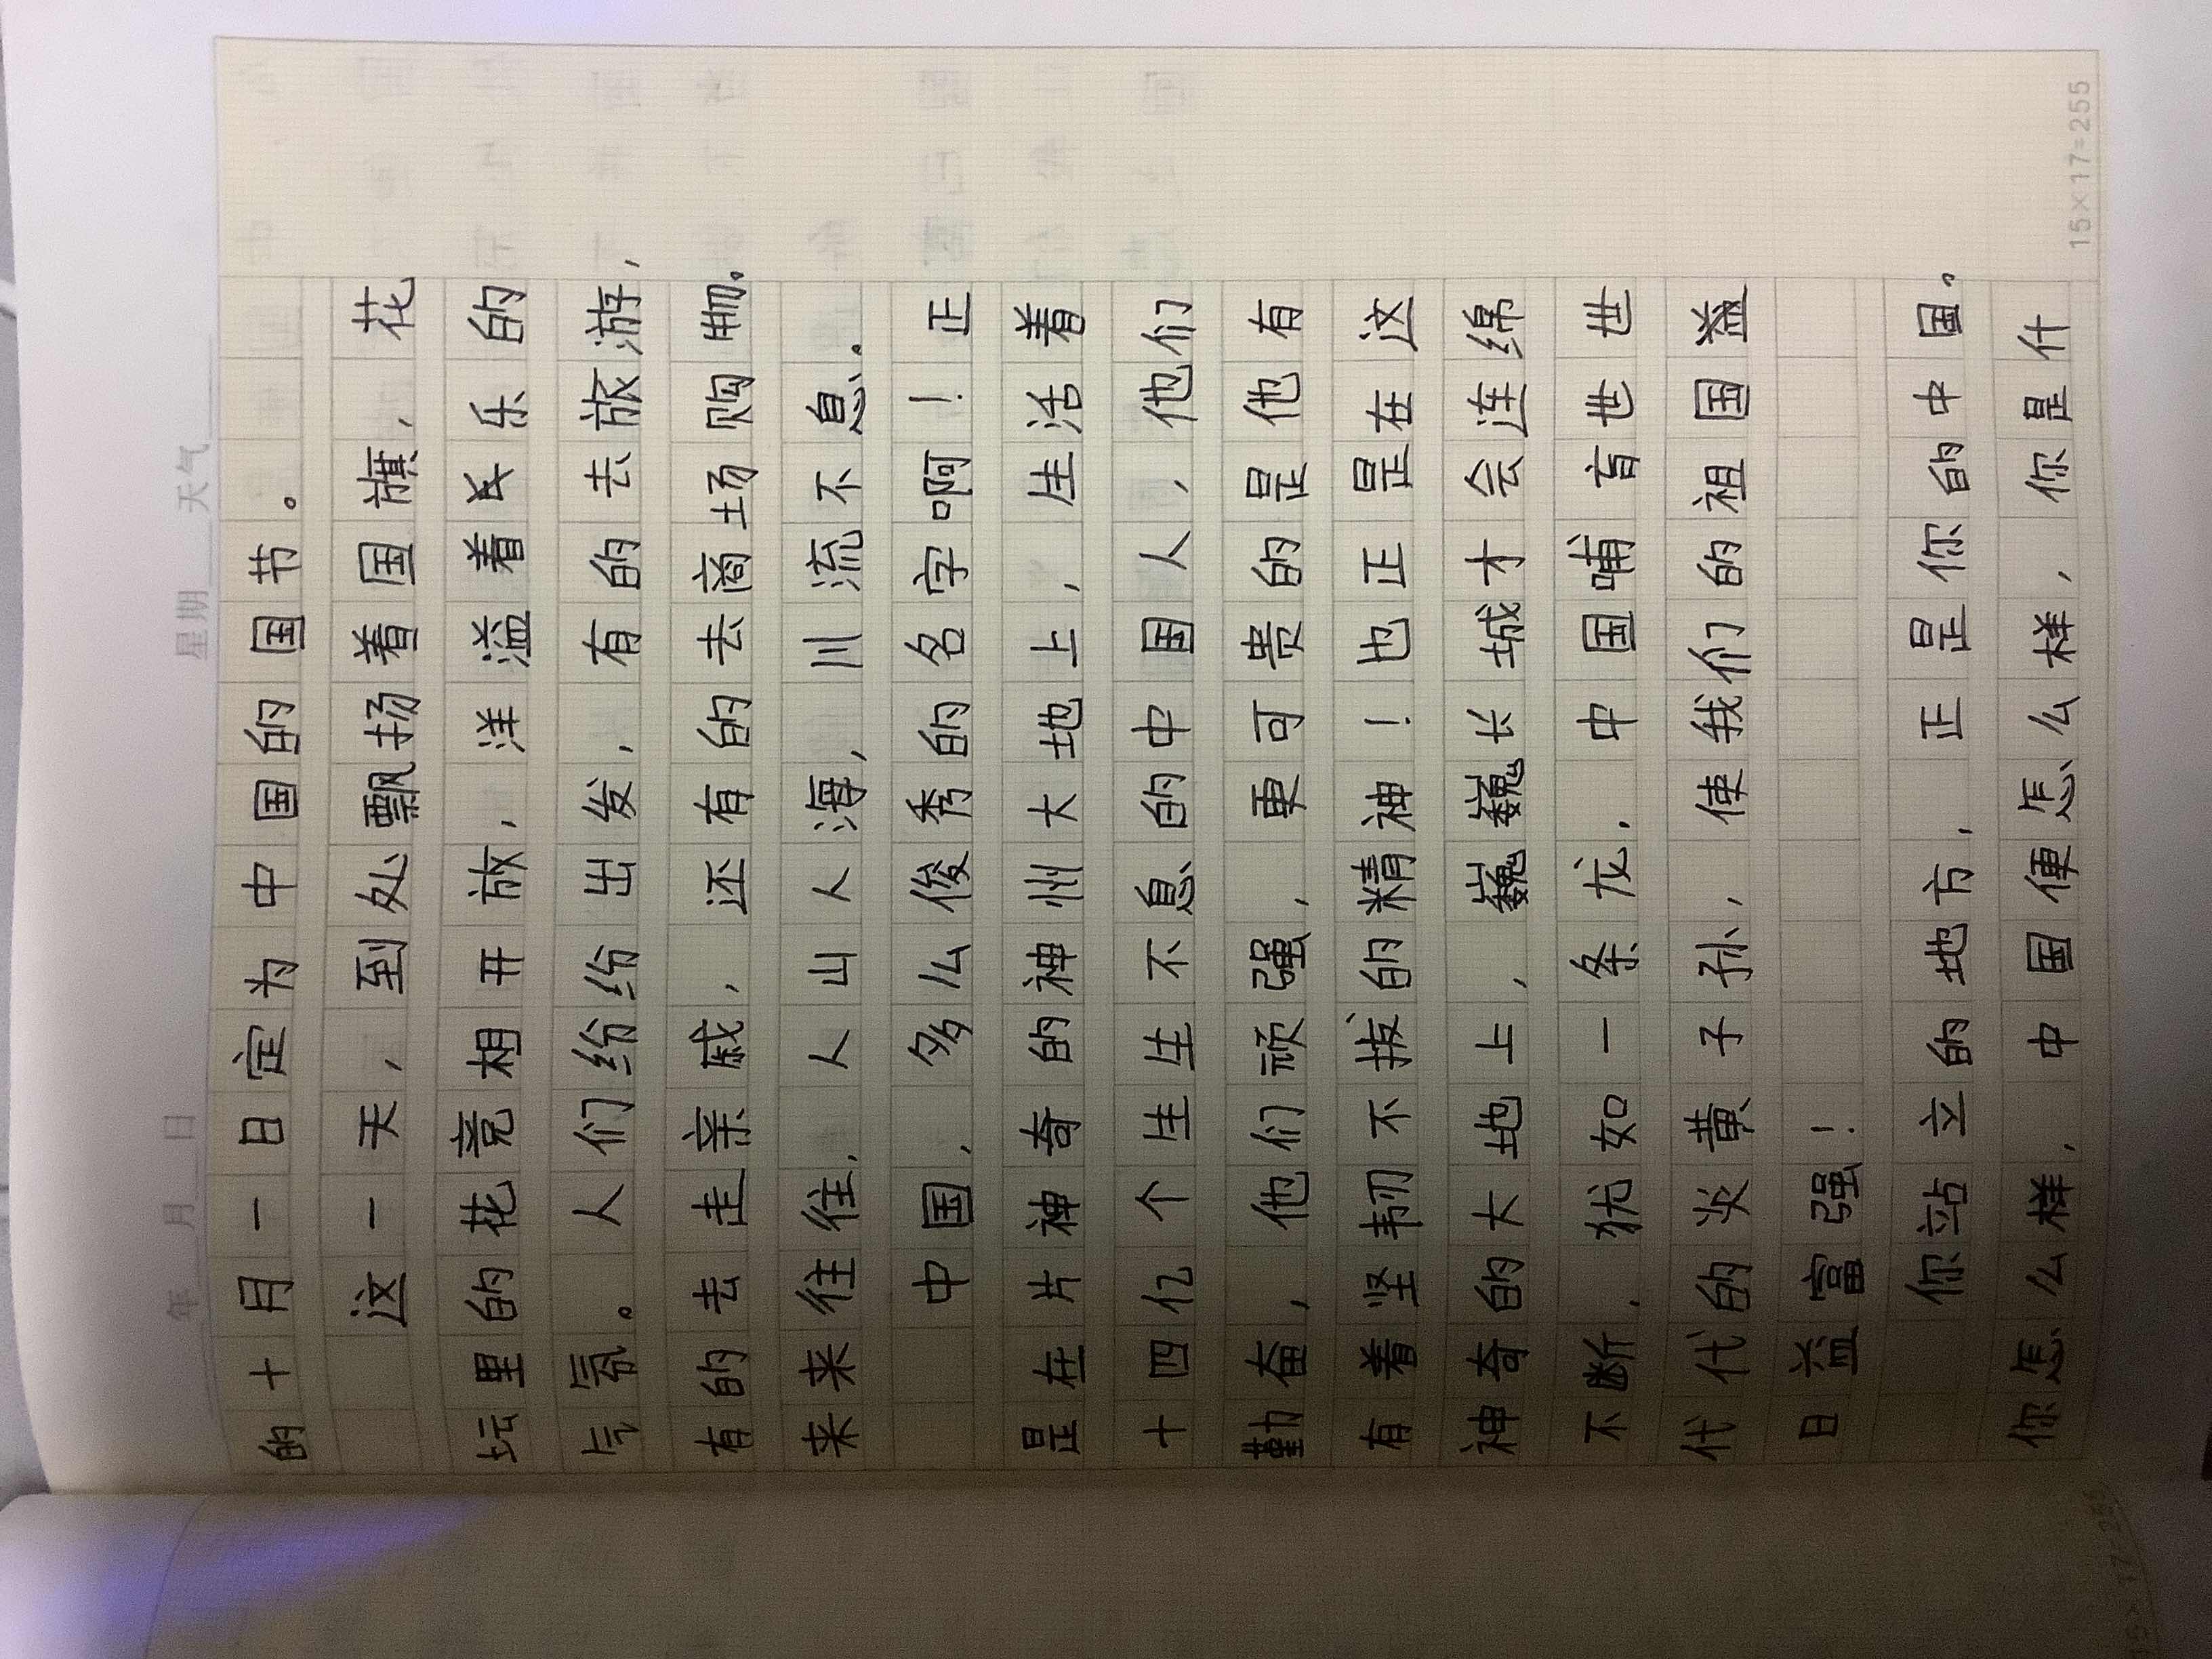 年 月 日 星期 天气
的十月一日定为中国的国节。
这一天，到处飘扬着国旗，花
坛里的花竞相开放，洋溢着乐的
气氛。人们纷纷出发，有的去旅游，
有的去走亲戚，还有的去商场购物。
来来往往，人山人海，川流不息。
中国，多么俊秀的名字啊！正
是在片神奇的神州大地上，生活着
十四亿个生生不息的中国人，他们
勤奋，他们顽强，更可贵的是他有
有着坚韧不拔的精神！也正是在这
神奇的大地上，巍巍长城才会连绵
不断，犹如一条龙，中国哺育世世
代代的炎黄子孙，使我们的祖国益
日益富强！
你站立的地方，正是你的中国。
你怎么样，中国便怎么样，你是什
15×17=255